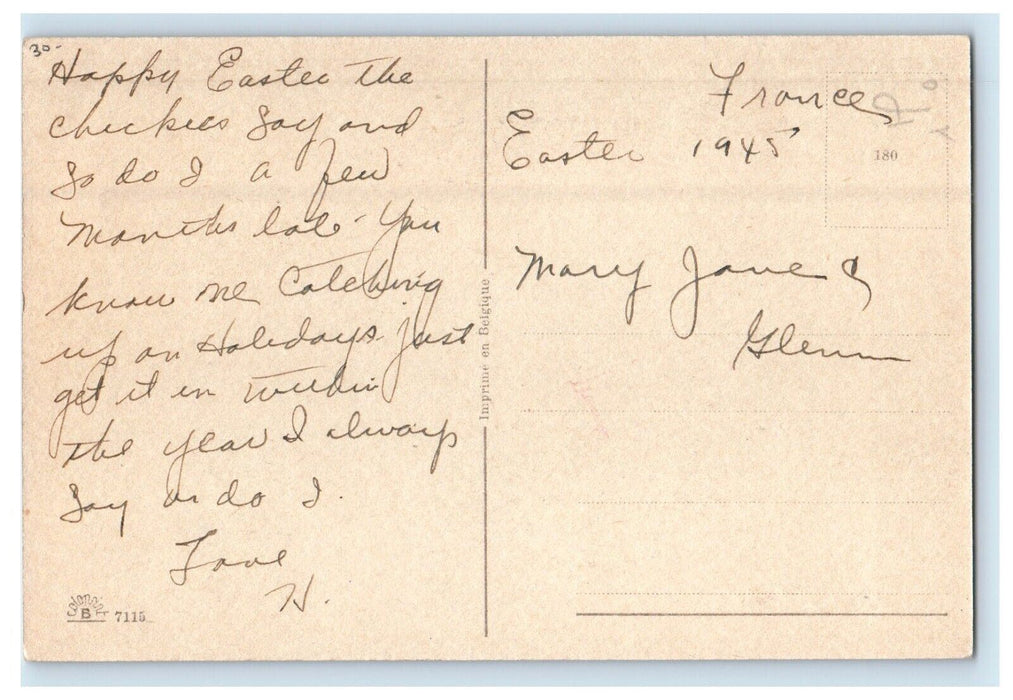 30-
Happy Easter the
chickies say and
so do I a few
months late. You
know me Catching
up on Holidays. Just
get it in within
the year I always
say or do I.
Love
H.
Colorprint
B 7115
Imprimé en Belgique
France
Easter 1945
180
Mary Jane &
Glenn